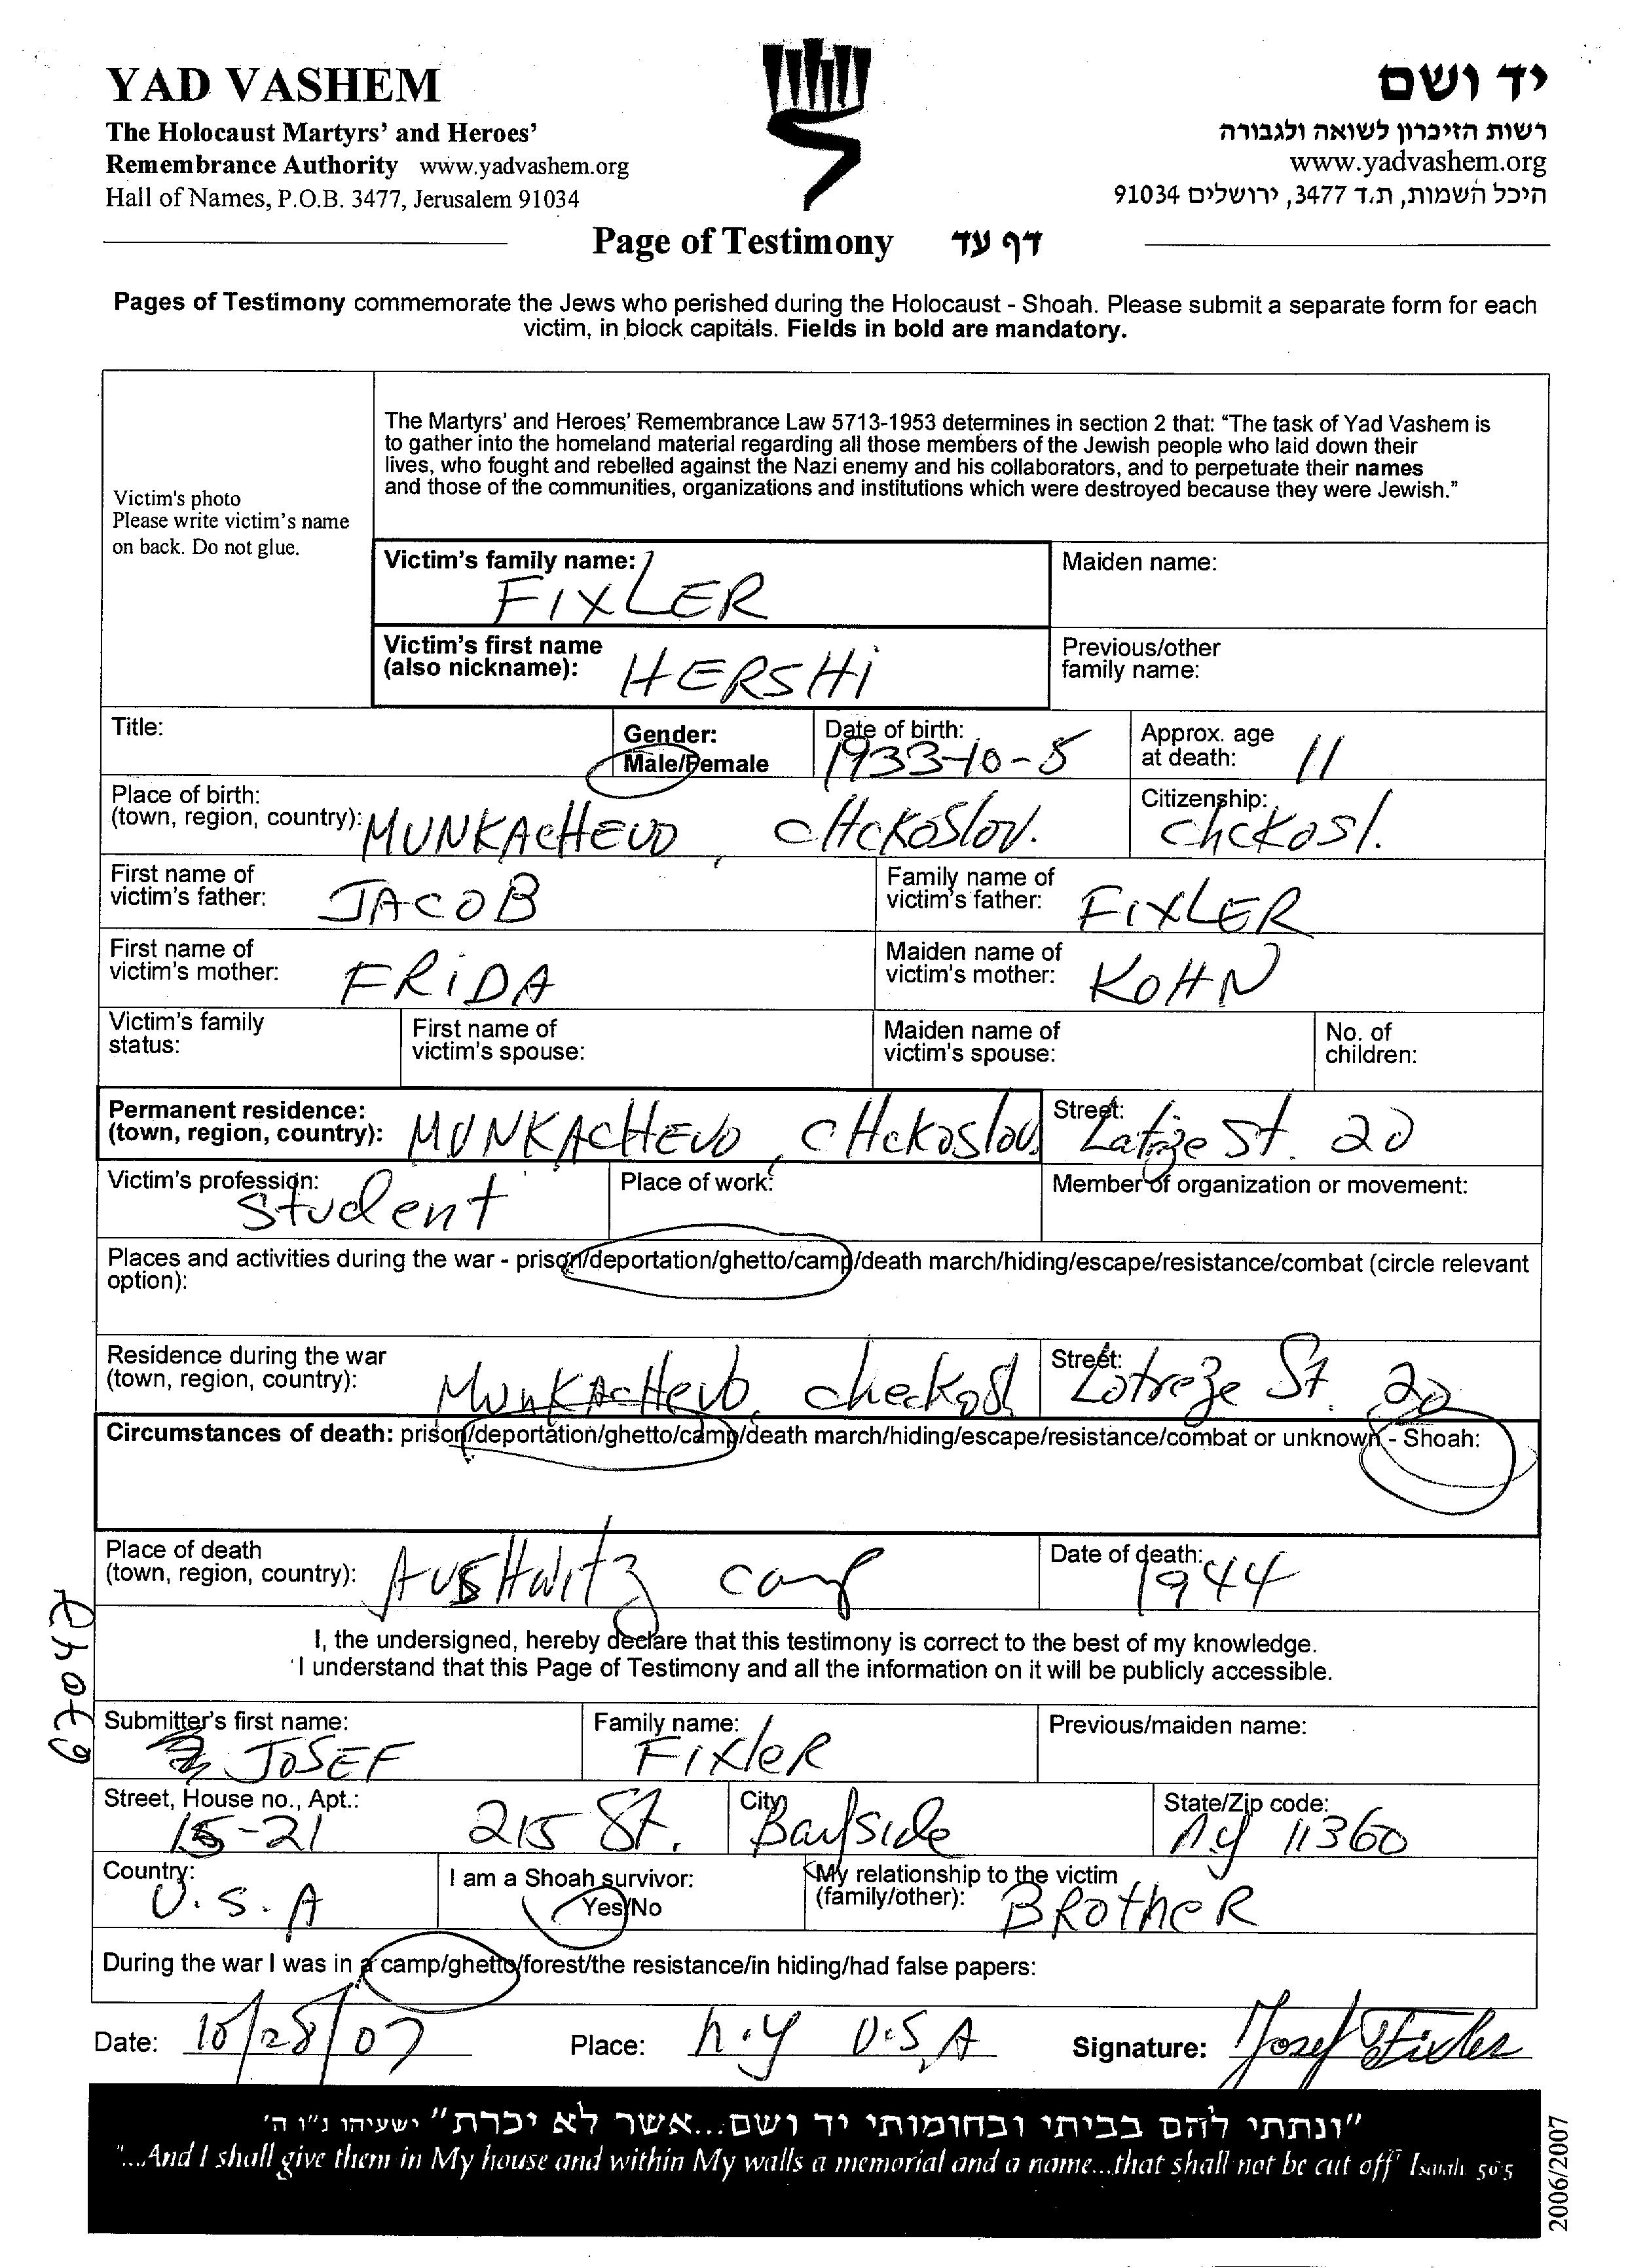 YAD VASHEM
The Holocaust Martyrs' and Heroes'
Remembrance Authority www.yadvashem.org
Hall of Names, P.O.B. 3477, Jerusalem 91034
יד ושם
רשות הזיכרון לשואה ולגבורה
www.yadvashem.org
היכל השמות, ת.ד 3477, ירושלים 91034
Page of Testimony דף עד
Pages of Testimony commemorate the Jews who perished during the Holocaust - Shoah. Please submit a separate form for each
victim, in block capitals. Fields in bold are mandatory.
Victim's photo
Please write victim's name
on back. Do not glue.
The Martyrs' and Heroes' Remembrance Law 5713-1953 determines in section 2 that: "The task of Yad Vashem is
to gather into the homeland material regarding all those members of the Jewish people who laid down their
lives, who fought and rebelled against the Nazi enemy and his collaborators, and to perpetuate their names
and those of the communities, organizations and institutions which were destroyed because they were Jewish."
Victim's family name: FIXLER
Maiden name:
Victim's first name
(also nickname): HERSHI
Previous/other
family name:
Title:
Gender:
Male/Female
Date of birth:
1933-10-5
Approx. age
at death: 11
Place of birth:
(town, region, country): MUNKACHEVO, CHCKOSlOV.
Citizenship:
CHCKOSl.
First name of
victim's father: JACOB
Family name of
victim's father: FIXLER
First name of
victim's mother: FRIDA
Maiden name of
victim's mother: KOHN
Victim's family
status:
First name of
victim's spouse:
Maiden name of
victim's spouse:
No. of
children:
Permanent residence:
(town, region, country): MUNKACHEVO, CHCKOSlOV.
Street: St. 20
Victim's profession:
Student
Place of work:
Member of organization or movement:
Places and activities during the war - prison/deportation/ghetto/camp/death march/hiding/escape/resistance/combat (circle relevant
option):
Residence during the war
(town, region, country): MunKAcHevo, checkosl
Street: St. 20
Circumstances of death: prison/deportation/ghetto/camp/death march/hiding/escape/resistance/combat or unknown - Shoah:
Place of death
(town, region, country): AUSHwitz camp
Date of death:
1944
I, the undersigned, hereby declare that this testimony is correct to the best of my knowledge.
I understand that this Page of Testimony and all the information on it will be publicly accessible.
Submitter's first name:
JOSEF
Family name:
FIXleR
Previous/maiden name:
Street, House no., Apt.:
15-21 215 St.
City:
Bayside
State/Zip code:
N.y 11360
Country:
U.S.A
I am a Shoah survivor:
Yes/No
My relationship to the victim
(family/other): BRotheR
During the war I was in a camp/ghetto/forest/the resistance/in hiding/had false papers:
Date: 10/28/07 Place: N.y U.S.A Signature: Josef Fixler
"ונתתי להם בביתי ובחומותי יד ושם...אשר לא יכרת" ישעיהו נ"ו ה'
"...And I shall give them in My house and within My walls a memorial and a name...that shall not be cut off" Isaiah 56:5
2006/2007